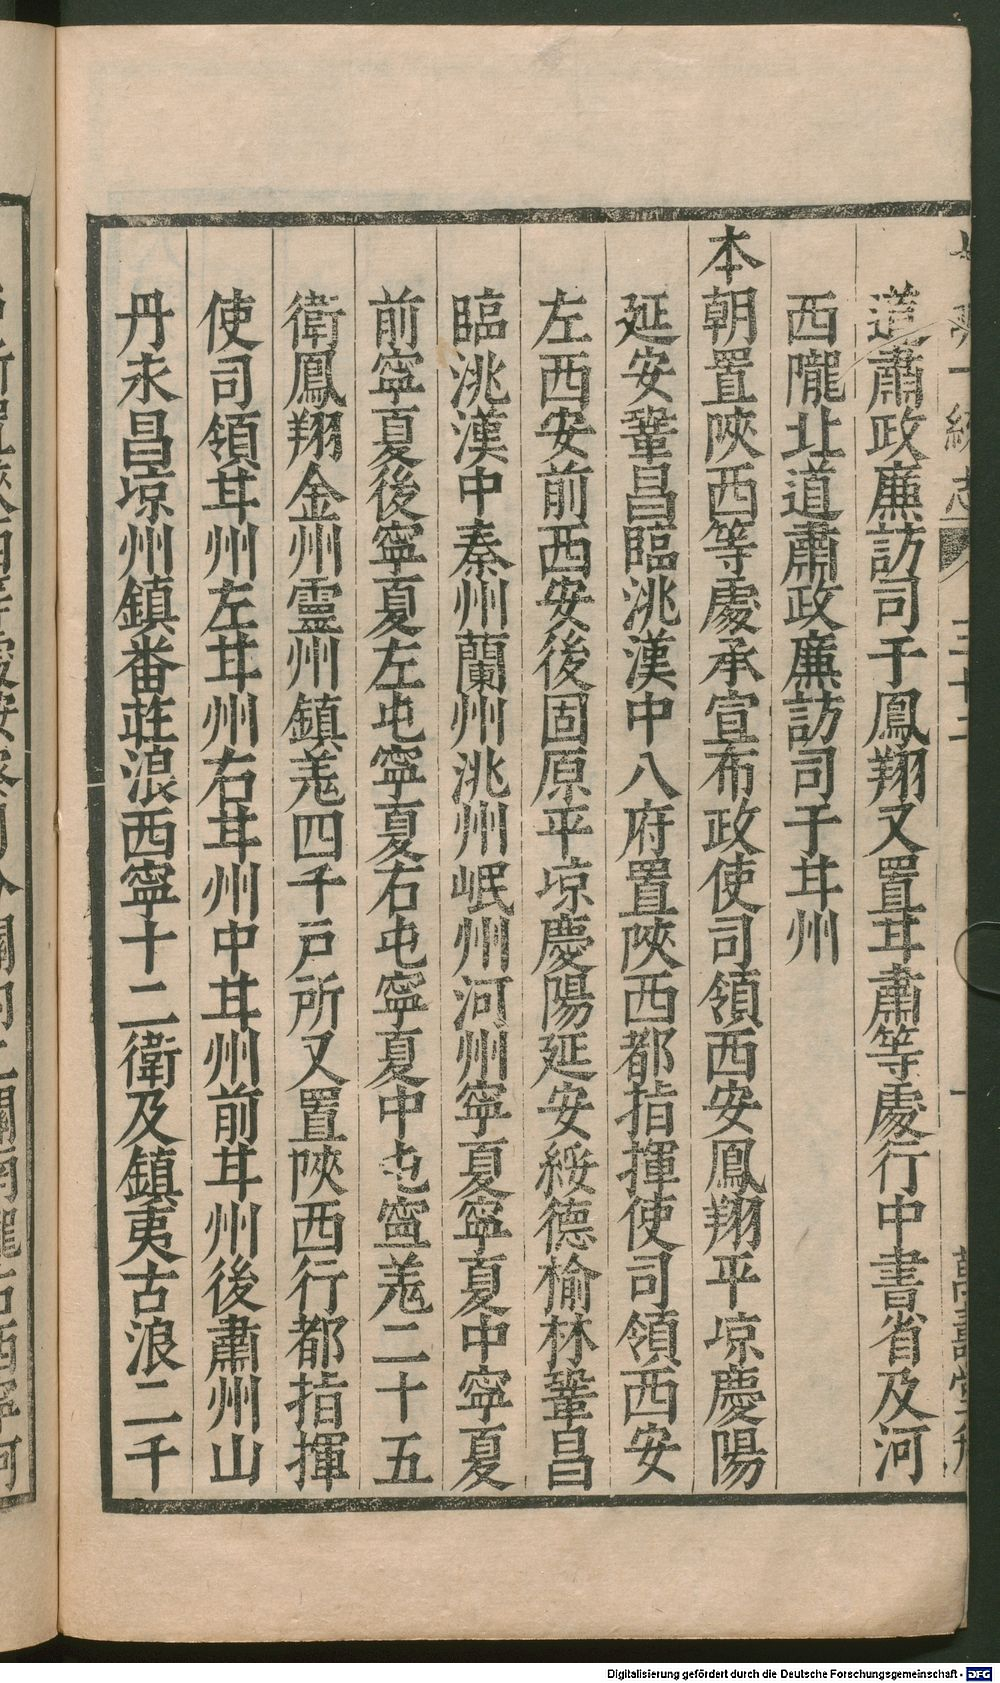 道肅政廉訪司于鳳翔又置甘肅等處行中書省及河
西隴北道肅政廉訪司于甘州
本朝置陝西等處承宣布政使司領西安鳳翔平凉慶陽
延安鞏昌臨洮漢中八府置陝西都指揮使司領西安
左西安前西安後固原平凉慶陽延安綏德榆林鞏昌
臨洮漢中秦州蘭州洮州岷州河州寧夏寧夏中寧夏
前寧夏後寧夏左屯寧夏右屯寧夏中屯寧羌二十五
衛鳳翔金州靈州鎮羌四千戸所又置陝西行都指揮
使司領甘州左甘州右甘州中甘州前甘州後肅州山
丹永昌凉州鎮番莊浪西寧十二衛及鎮夷古浪二千
Digitalisierung gefördert durch die Deutsche Forschungsgemeinschaft - DFG